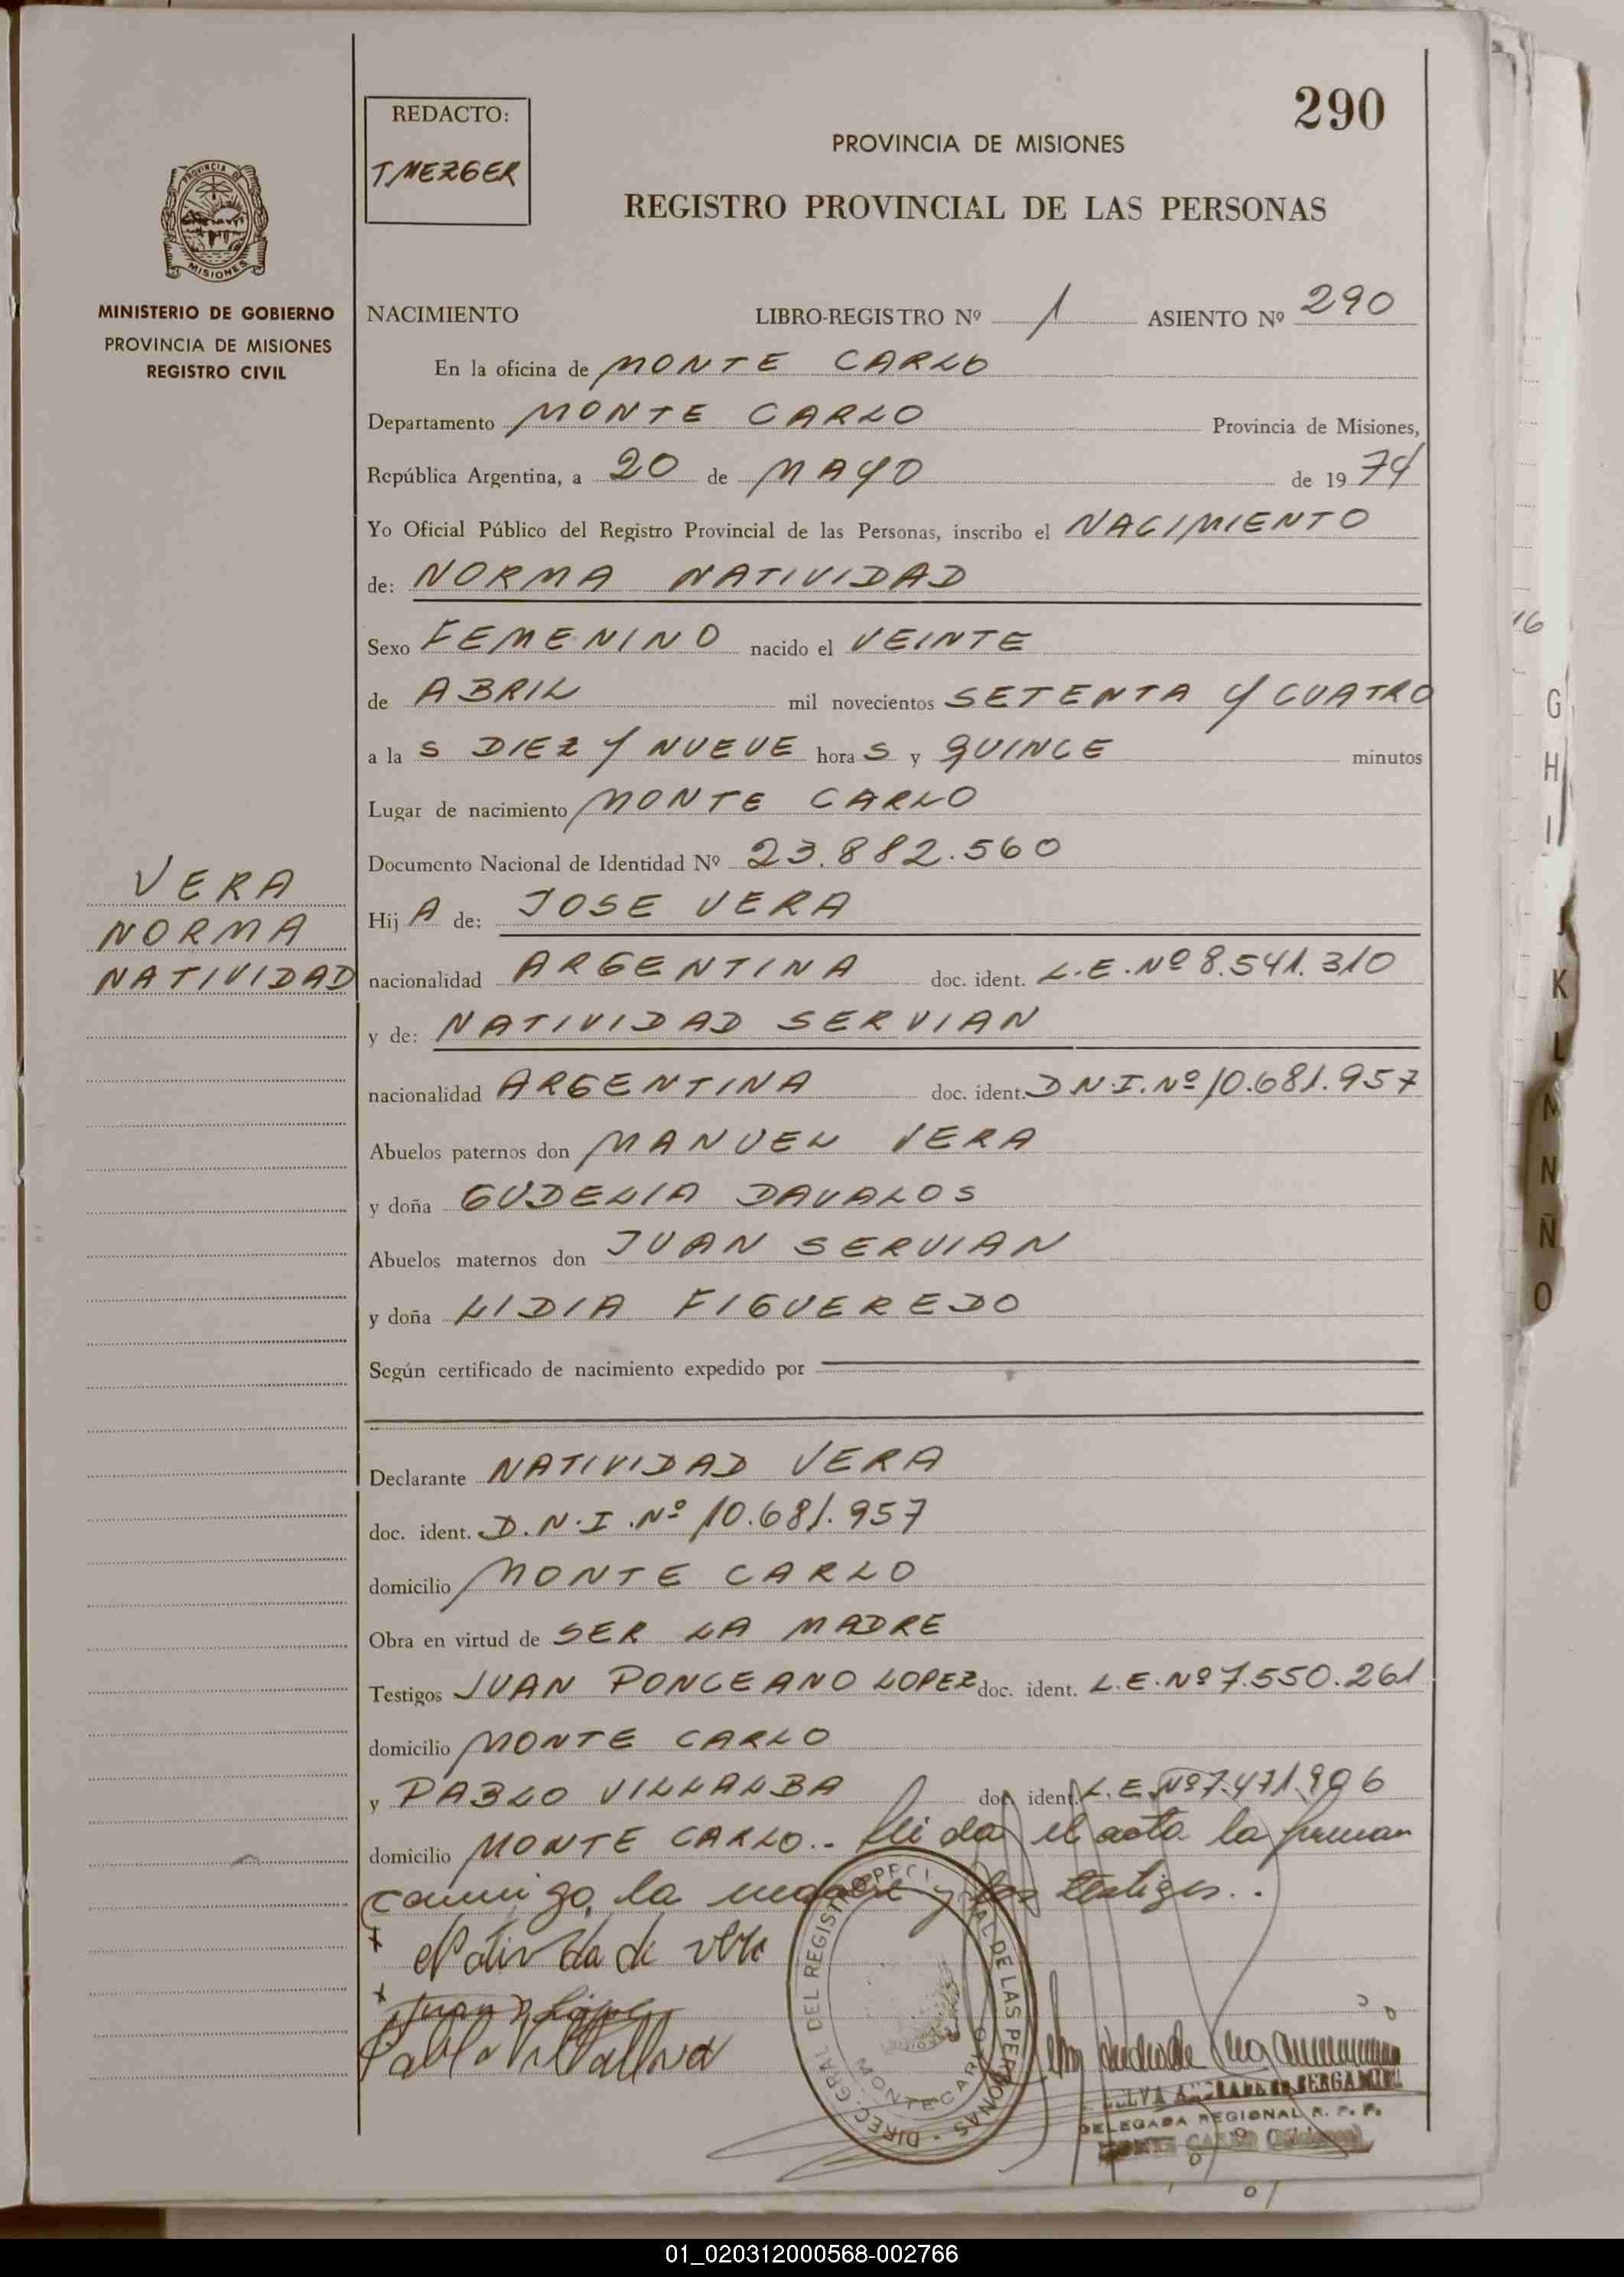 290
REDACTO:
T MEZGER
PROVINCIA DE MISIONES
REGISTRO PROVINCIAL DE LAS PERSONAS
PROVINCIA D
MISIONES
MINISTERIO DE GOBIERNO
PROVINCIA DE MISIONES
REGISTRO CIVIL
NACIMIENTO LIBRO-REGISTRO Nº 1 ASIENTO Nº 290
En la oficina de MONTE CARLO
Departamento MONTE CARLO Provincia de Misiones,
República Argentina, a 20 de MAYO de 1974
Yo Oficial Público del Registro Provincial de las Personas, inscribo el NACIMIENTO
de: NORMA NATIVIDAD
Sexo FEMENINO nacido el VEINTE
de ABRIL mil novecientos SETENTA Y CUATRO
a la S DIEZ Y NUEVE hora S y QUINCE minutos
Lugar de nacimiento MONTE CARLO
Documento Nacional de Identidad Nº 23.882.560
VERA
NORMA
NATIVIDAD
Hij A de: JOSE VERA
nacionalidad ARGENTINA doc. ident. L.E.Nº 8.541.310
y de: NATIVIDAD SERVIAN
nacionalidad ARGENTINA doc. ident. D.N.I.Nº 10.681.957
Abuelos paternos don MANUEL VERA
y doña GUDELIA DAVALOS
Abuelos maternos don JUAN SERVIAN
y doña LIDIA FIGUEREDO
Según certificado de nacimiento expedido por
Declarante NATIVIDAD VERA
doc. ident. D.N.I.Nº 10.681.957
domicilio MONTE CARLO
Obra en virtud de SER LA MADRE
Testigos JUAN PONCEANO LOPEZ doc. ident. L.E.Nº 7.550.261
domicilio MONTE CARLO
y PABLO VILLALBA doc. ident. L.E.Nº 7.471.906
domicilio MONTE CARLO.- Leida el acta la firman
conmigo, la madre y los testigos..
Natividad de vera
Juan P. López
Pablo Villalba
DIREC. GRAL DEL REGISTRO DE LAS PERSONAS
MONTECARLO
DELEGADA REGIONAL R. P. P.
G
H
I
K
L
M
N
Ñ
O
01_020312000568-002766